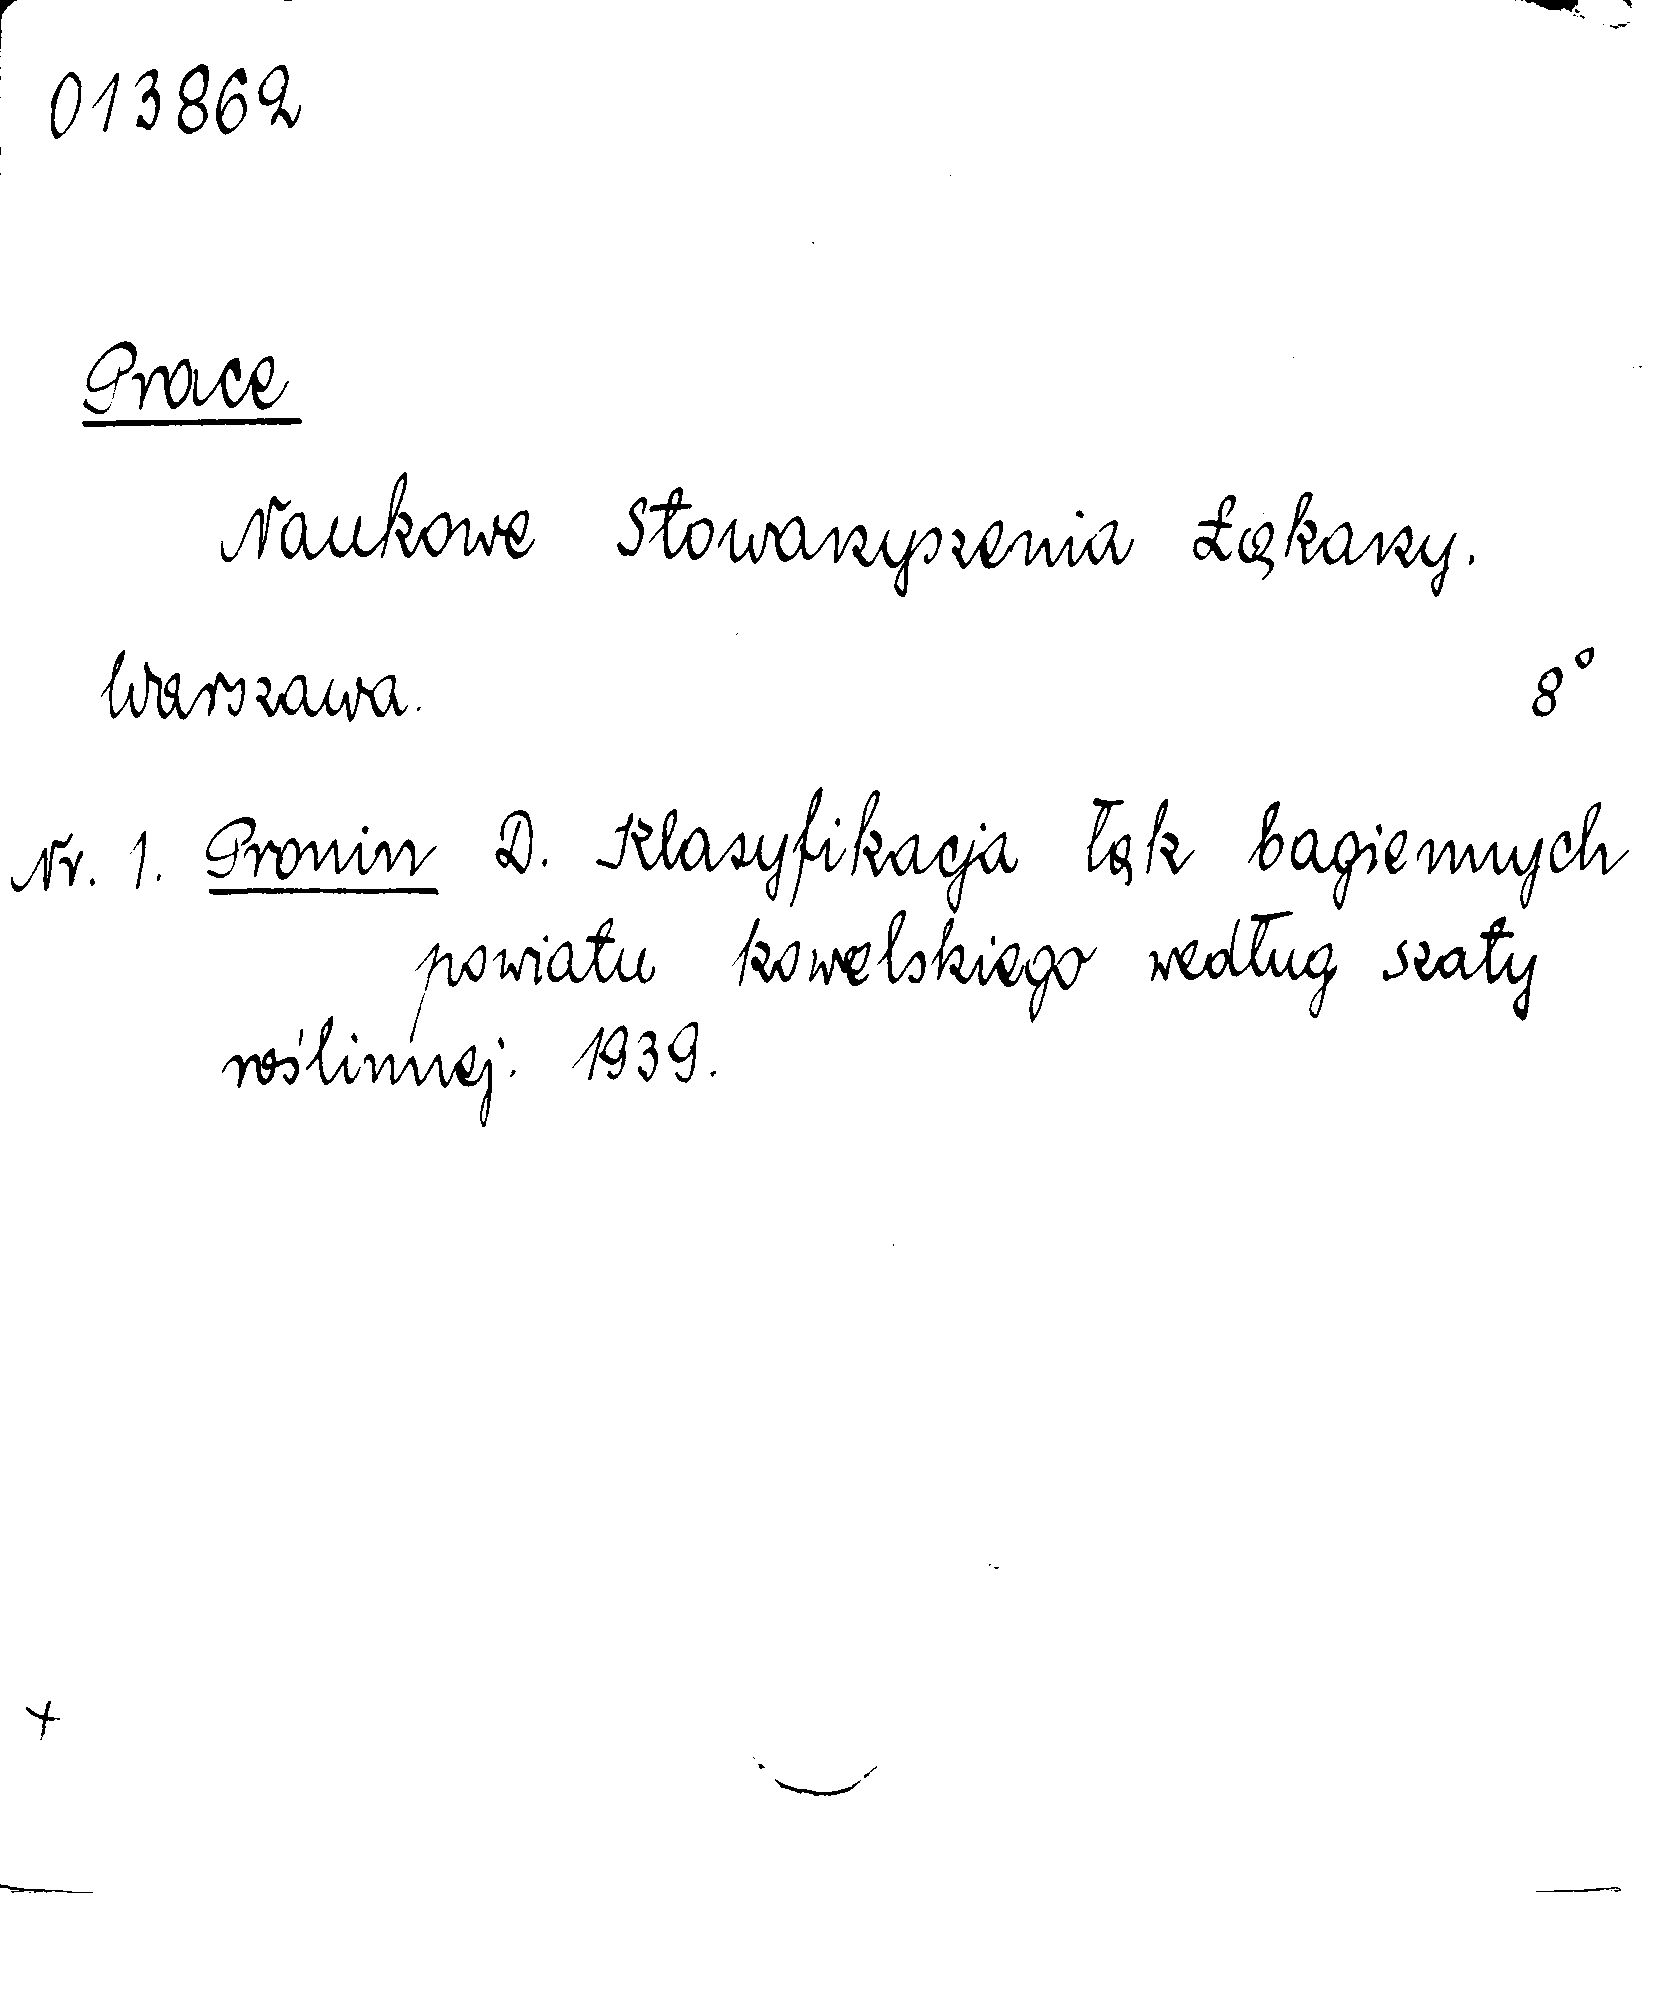 013862
Prace
Naukowe Stowarzyszenia Łąkarzy.
Warszawa. 8°
Nr. 1. Pronin D. Klasyfikacja łąk bagiennych
powiatu kowelskiego według szaty
roślinnej. 1939.
+